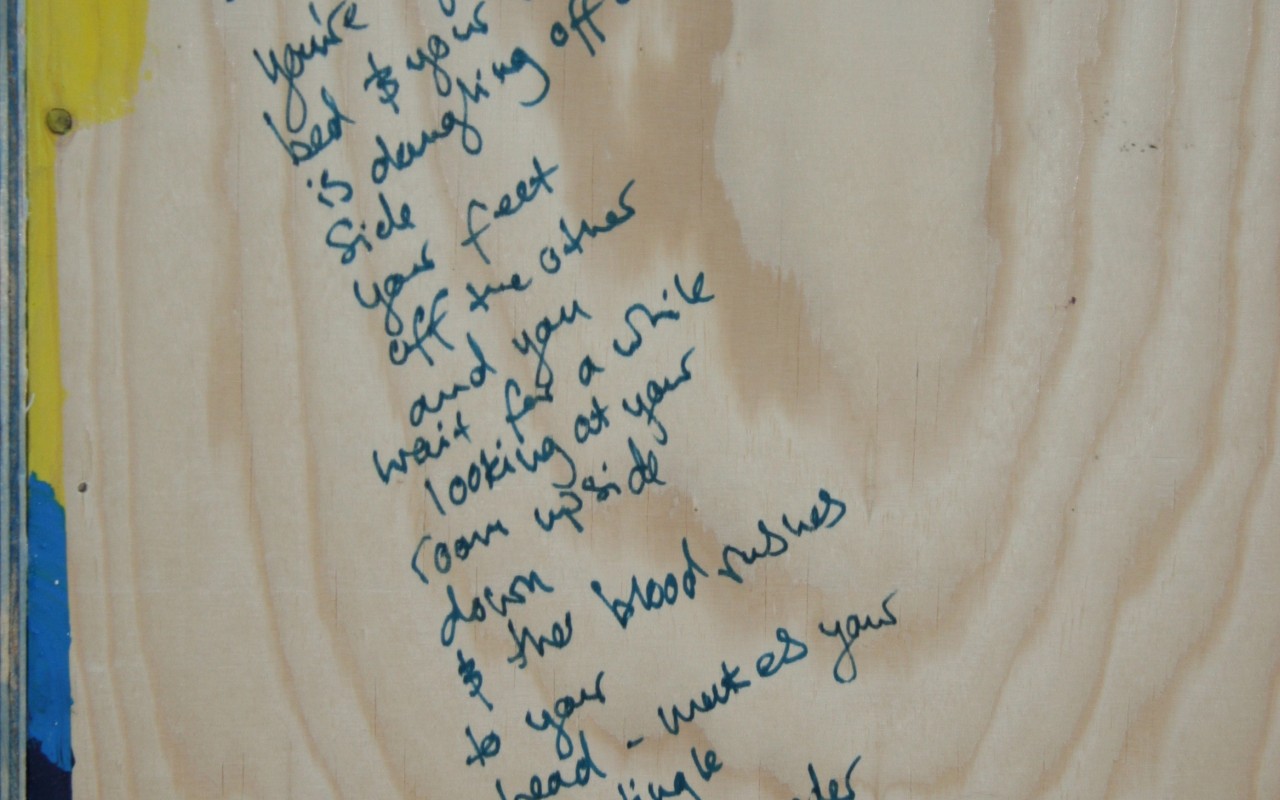 you're
bed & your
is dangling off
side
your feet
off the other
and you
wait for a while
looking at your
room upside
down
& the blood rushes
to your
head - makes your